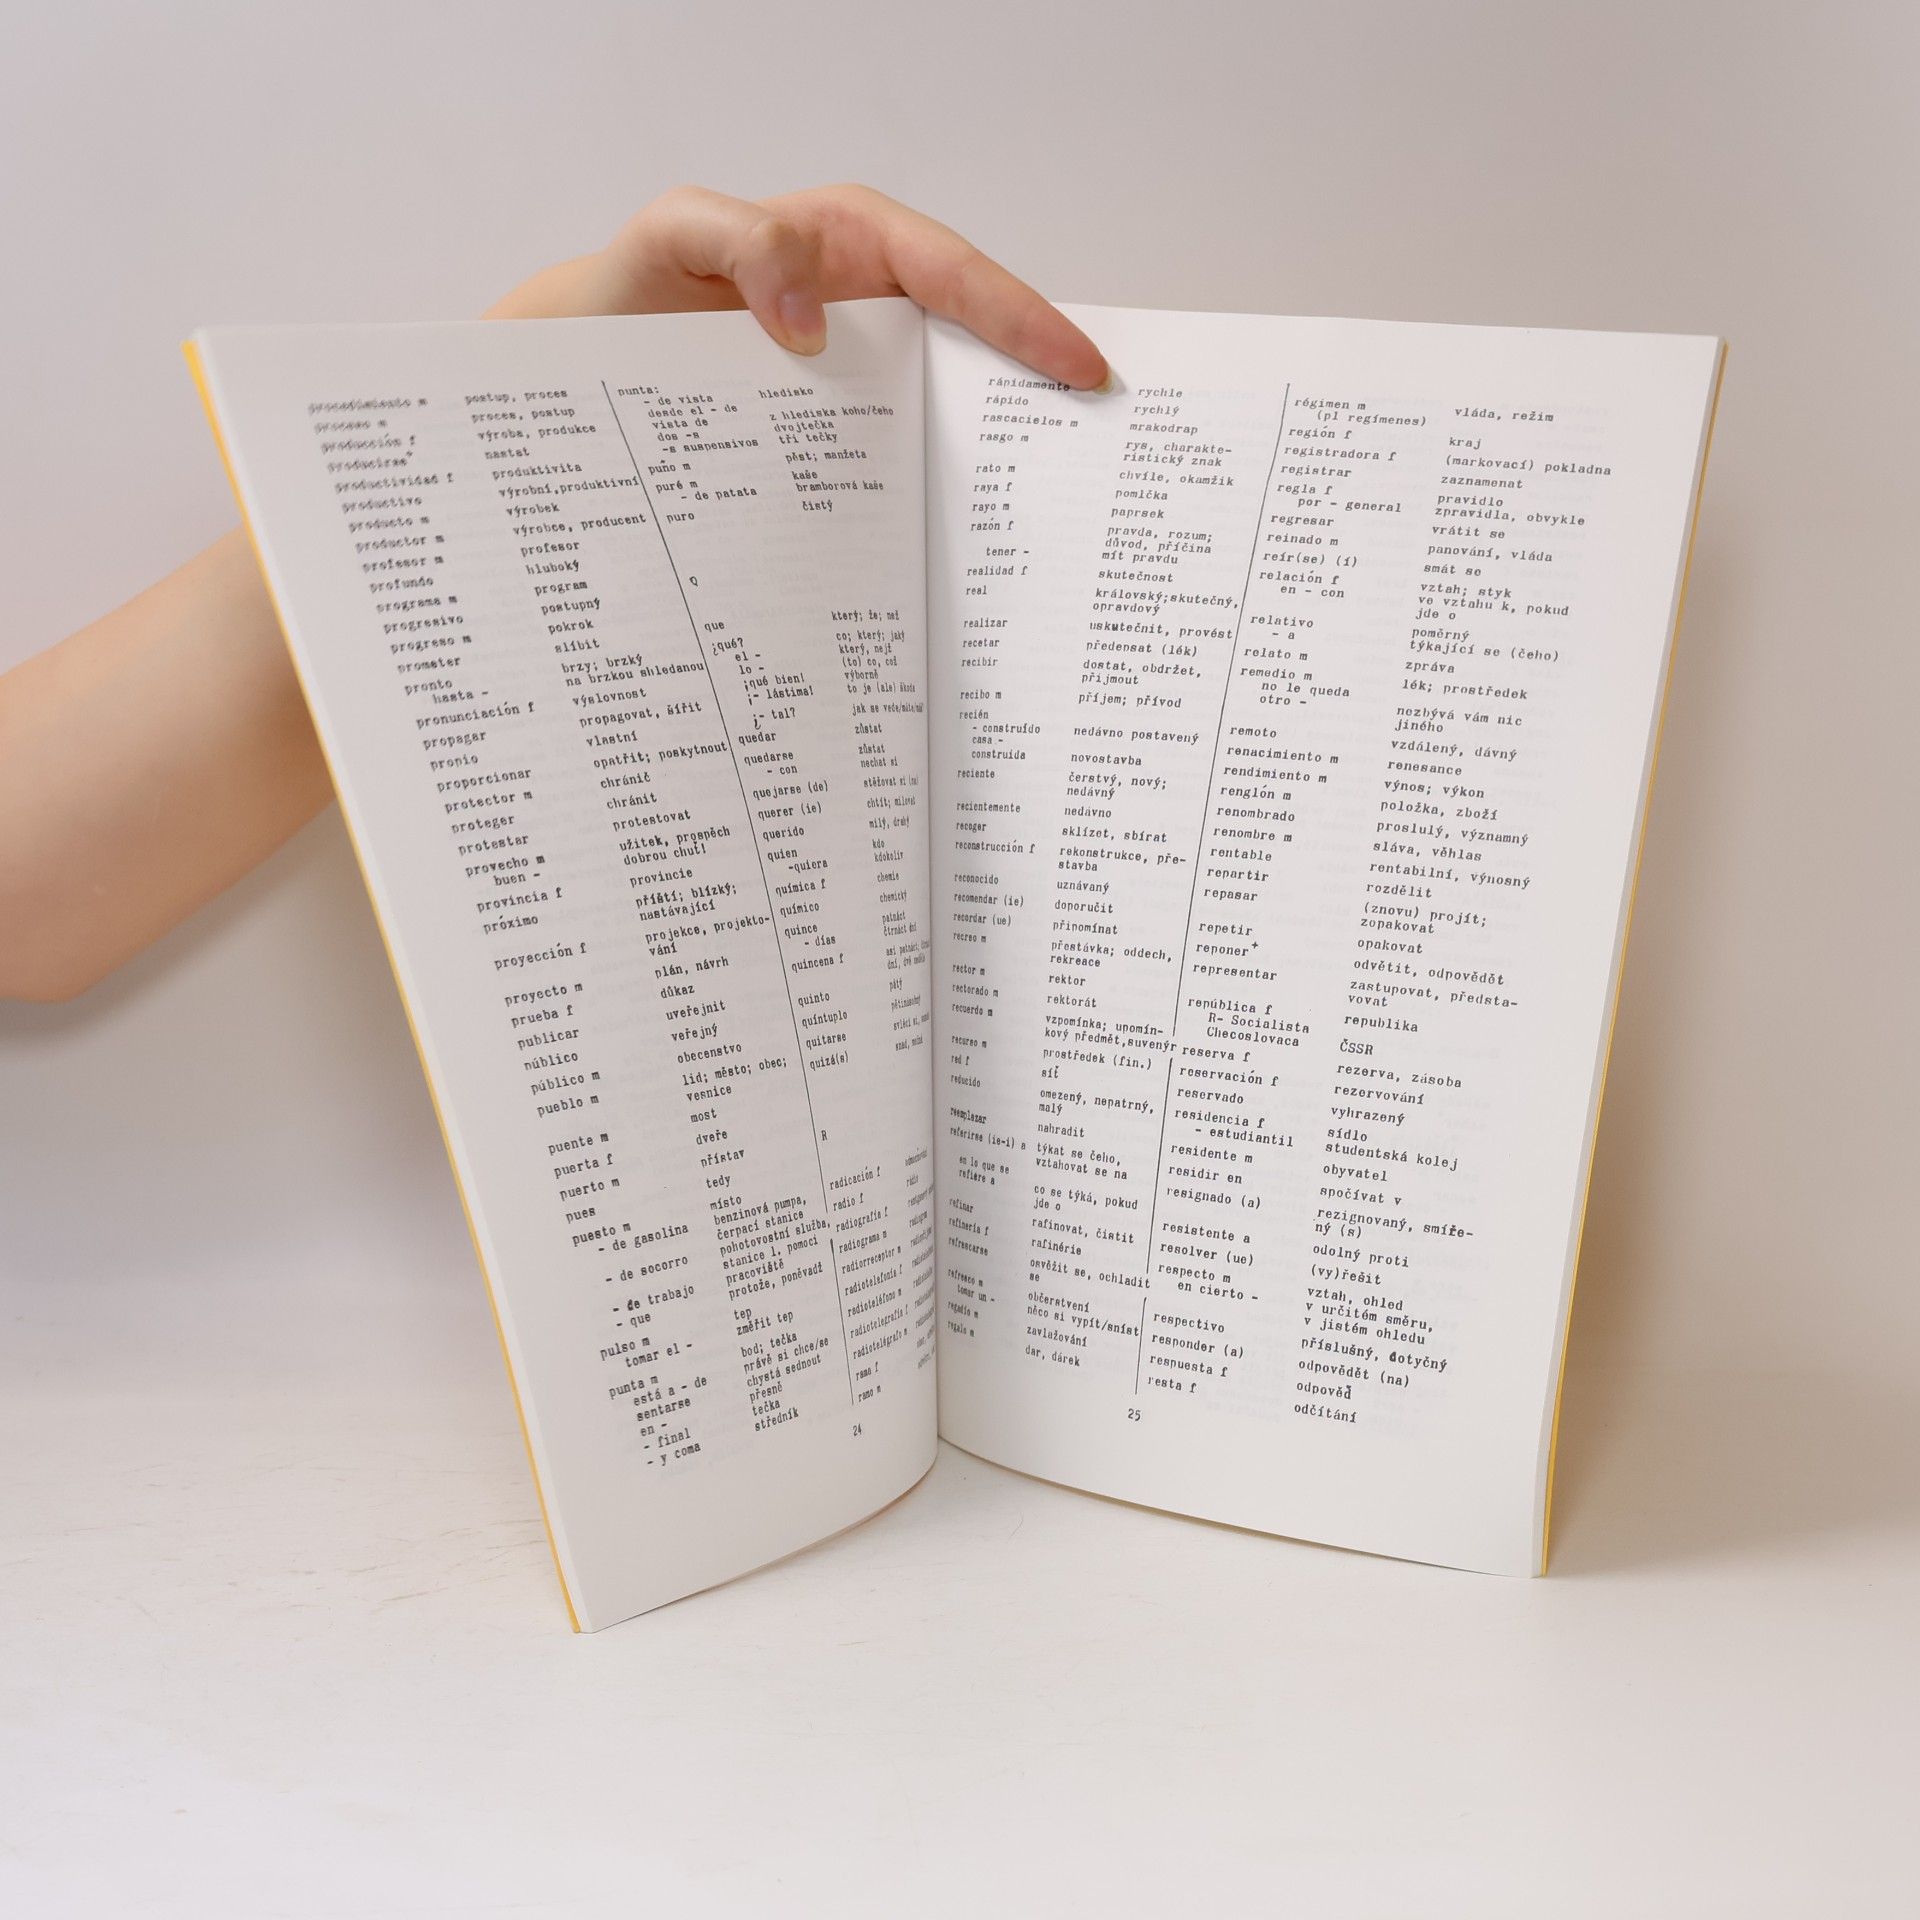 procedimiento m postup, proces
proceso m proces, postup
producción f výroba, produkce
producirse+ nastat
productividad f produktivita
productivo výrobní,produktivní
producto m výrobek
productor m výrobce, producent
profesor m profesor
profundo hluboký
programa m program
progresivo postupný
progreso m pokrok
prometer slíbit
pronto brzy; brzký
hasta - na brzkou shledanou
pronunciación f výslovnost
propagar propagovat, šířit
propio vlastní
proporcionar opatřit; poskytnout
protector m chránič
proteger chránit
protestar protestovat
provecho m užitek, prospěch
buen - dobrou chuť!
provincia f provincie
próximo příští; blízký;
nastávající
proyección f projekce, projekto-
vání
proyecto m plán, návrh
prueba f důkaz
publicar uveřejnit
público veřejný
público m obecenstvo
pueblo m lid; město; obec;
vesnice
puente m most
puerta f dveře
puerto m přístav
pues tedy
puesto m místo
- de gasolina benzinová pumpa,
čerpací stanice
- de socorro pohotovostní služba,
stanice 1. pomoci
- de trabajo pracoviště
- que protože, poněvadž
pulso m tep
tomar el - změřit tep
punta m bod; tečka
está a - de právě si chce/se
sentarse chystá sednout
en - přesně
- final tečka
- y coma středník
punta:
- de vista hledisko
desde el - de
vista de z hlediska koho/čeho
dos -s dvojtečka
-s suspensivos tři tečky
puño m pěst; manžeta
puré m kaše
- de patata bramborová kaše
puro čistý
Q
que který; že; než
¿qué? co; který; jaký
el - který, nejž
lo - (to) co, což
¡qué bien! výborně
¡- lástima! to je (ale) škoda
¿- tal? jak se vede/máte/máš
quedar zůstat
quedarse zůstat
- con nechat si
quejarse (de) stěžovat si (na)
querer (ie) chtít; milovat
querido milý, drahý
quien kdo
-quiera kdokoliv
química f chemie
químico chemický
quince patnáct
- días čtrnáct dní
quincena f asi patnáct,
dní, dvě neděle
quinto pátý
quíntuplo pětinásobný
quitarse svléci si,
quizá(s) snad, možná
R
radicación f
radio f rádio
radiografía f
radiograma m radiogram
radiorreceptor m
radiotelefonía f
radioteléfono m
radiotelegrafía f
radiotelégrafo m
rama f
ramo m
24
rápidamente rychle
rápido rychlý
rascacielos m mrakodrap
rasgo m rys, charakte-
ristický znak
rato m chvíle, okamžik
raya f pomlčka
rayo m paprsek
razón f pravda, rozum;
důvod, příčina
tener - mít pravdu
realidad f skutečnost
real královský;skutečný,
opravdový
realizar uskutečnit, provést
recetar předepsat (lék)
recibir dostat, obdržet,
přijmout
recibo m příjem; přívod
recién
- construído nedávno postavený
casa -
construida novostavba
reciente čerstvý, nový;
nedávný
recientemente nedávno
recoger sklízet, sbírat
reconstrucción f rekonstrukce, pře-
stavba
reconocido uznávaný
recomendar (ie) doporučit
recordar (ue) připomínat
recreo m přestávka; oddech,
rekreace
rector m rektor
rectorado m rektorát
recuerdo m vzpomínka; upomín-
kový předmět,suvenýr
recurso m prostředek (fin.)
red f síť
reducido omezený, nepatrný,
malý
reemplazar nahradit
referirse (ie-i) a týkat se čeho,
vztahovat se na
en lo que se
refiere a co se týká, pokud
jde o
refinar rafinovat, čistit
refinería f rafinérie
refrescarse osvěžit se, ochladit
se
refresco m občerstvení
tomar un - něco si vypít/sníst
regadío m zavlažování
regalo m dar, dárek
régimen m
(pl regímenes) vláda, režim
región f kraj
registradora f (markovací) pokladna
registrar zaznamenat
regla f pravidlo
por - general zpravidla, obvykle
regresar vrátit se
reinado m panování, vláda
reír(se) (i) smát se
relación f vztah; styk
en - con ve vztahu k, pokud
jde o
relativo poměrný
- a týkající se (čeho)
relato m zpráva
remedio m lék; prostředek
no le queda
otro - nezbývá vám nic
jiného
remoto vzdálený, dávný
renacimiento m renesance
rendimiento m výnos; výkon
renglón m položka, zboží
renombrado proslulý, významný
renombre m sláva, věhlas
rentable rentabilní, výnosný
repartir rozdělit
repasar (znovu) projít;
zopakovat
repetir opakovat
reponer+ odvětit, odpovědět
representar zastupovat, předsta-
vovat
república f republika
R- Socialista
Checoslovaca ČSSR
reserva f rezerva, zásoba
reservación f rezervování
reservado vyhrazený
residencia f sídlo
- estudiantil studentská kolej
residente m obyvatel
residir en spočívat v
resignado (a) rezignovaný, smíře-
ný (s)
resistente a odolný proti
resolver (ue) (vy)řešit
respecto m vztah, ohled
en cierto - v určitém směru,
v jistém ohledu
respectivo příslušný, dotyčný
responder (a) odpovědět (na)
respuesta f odpověď
resta f odčítání
25